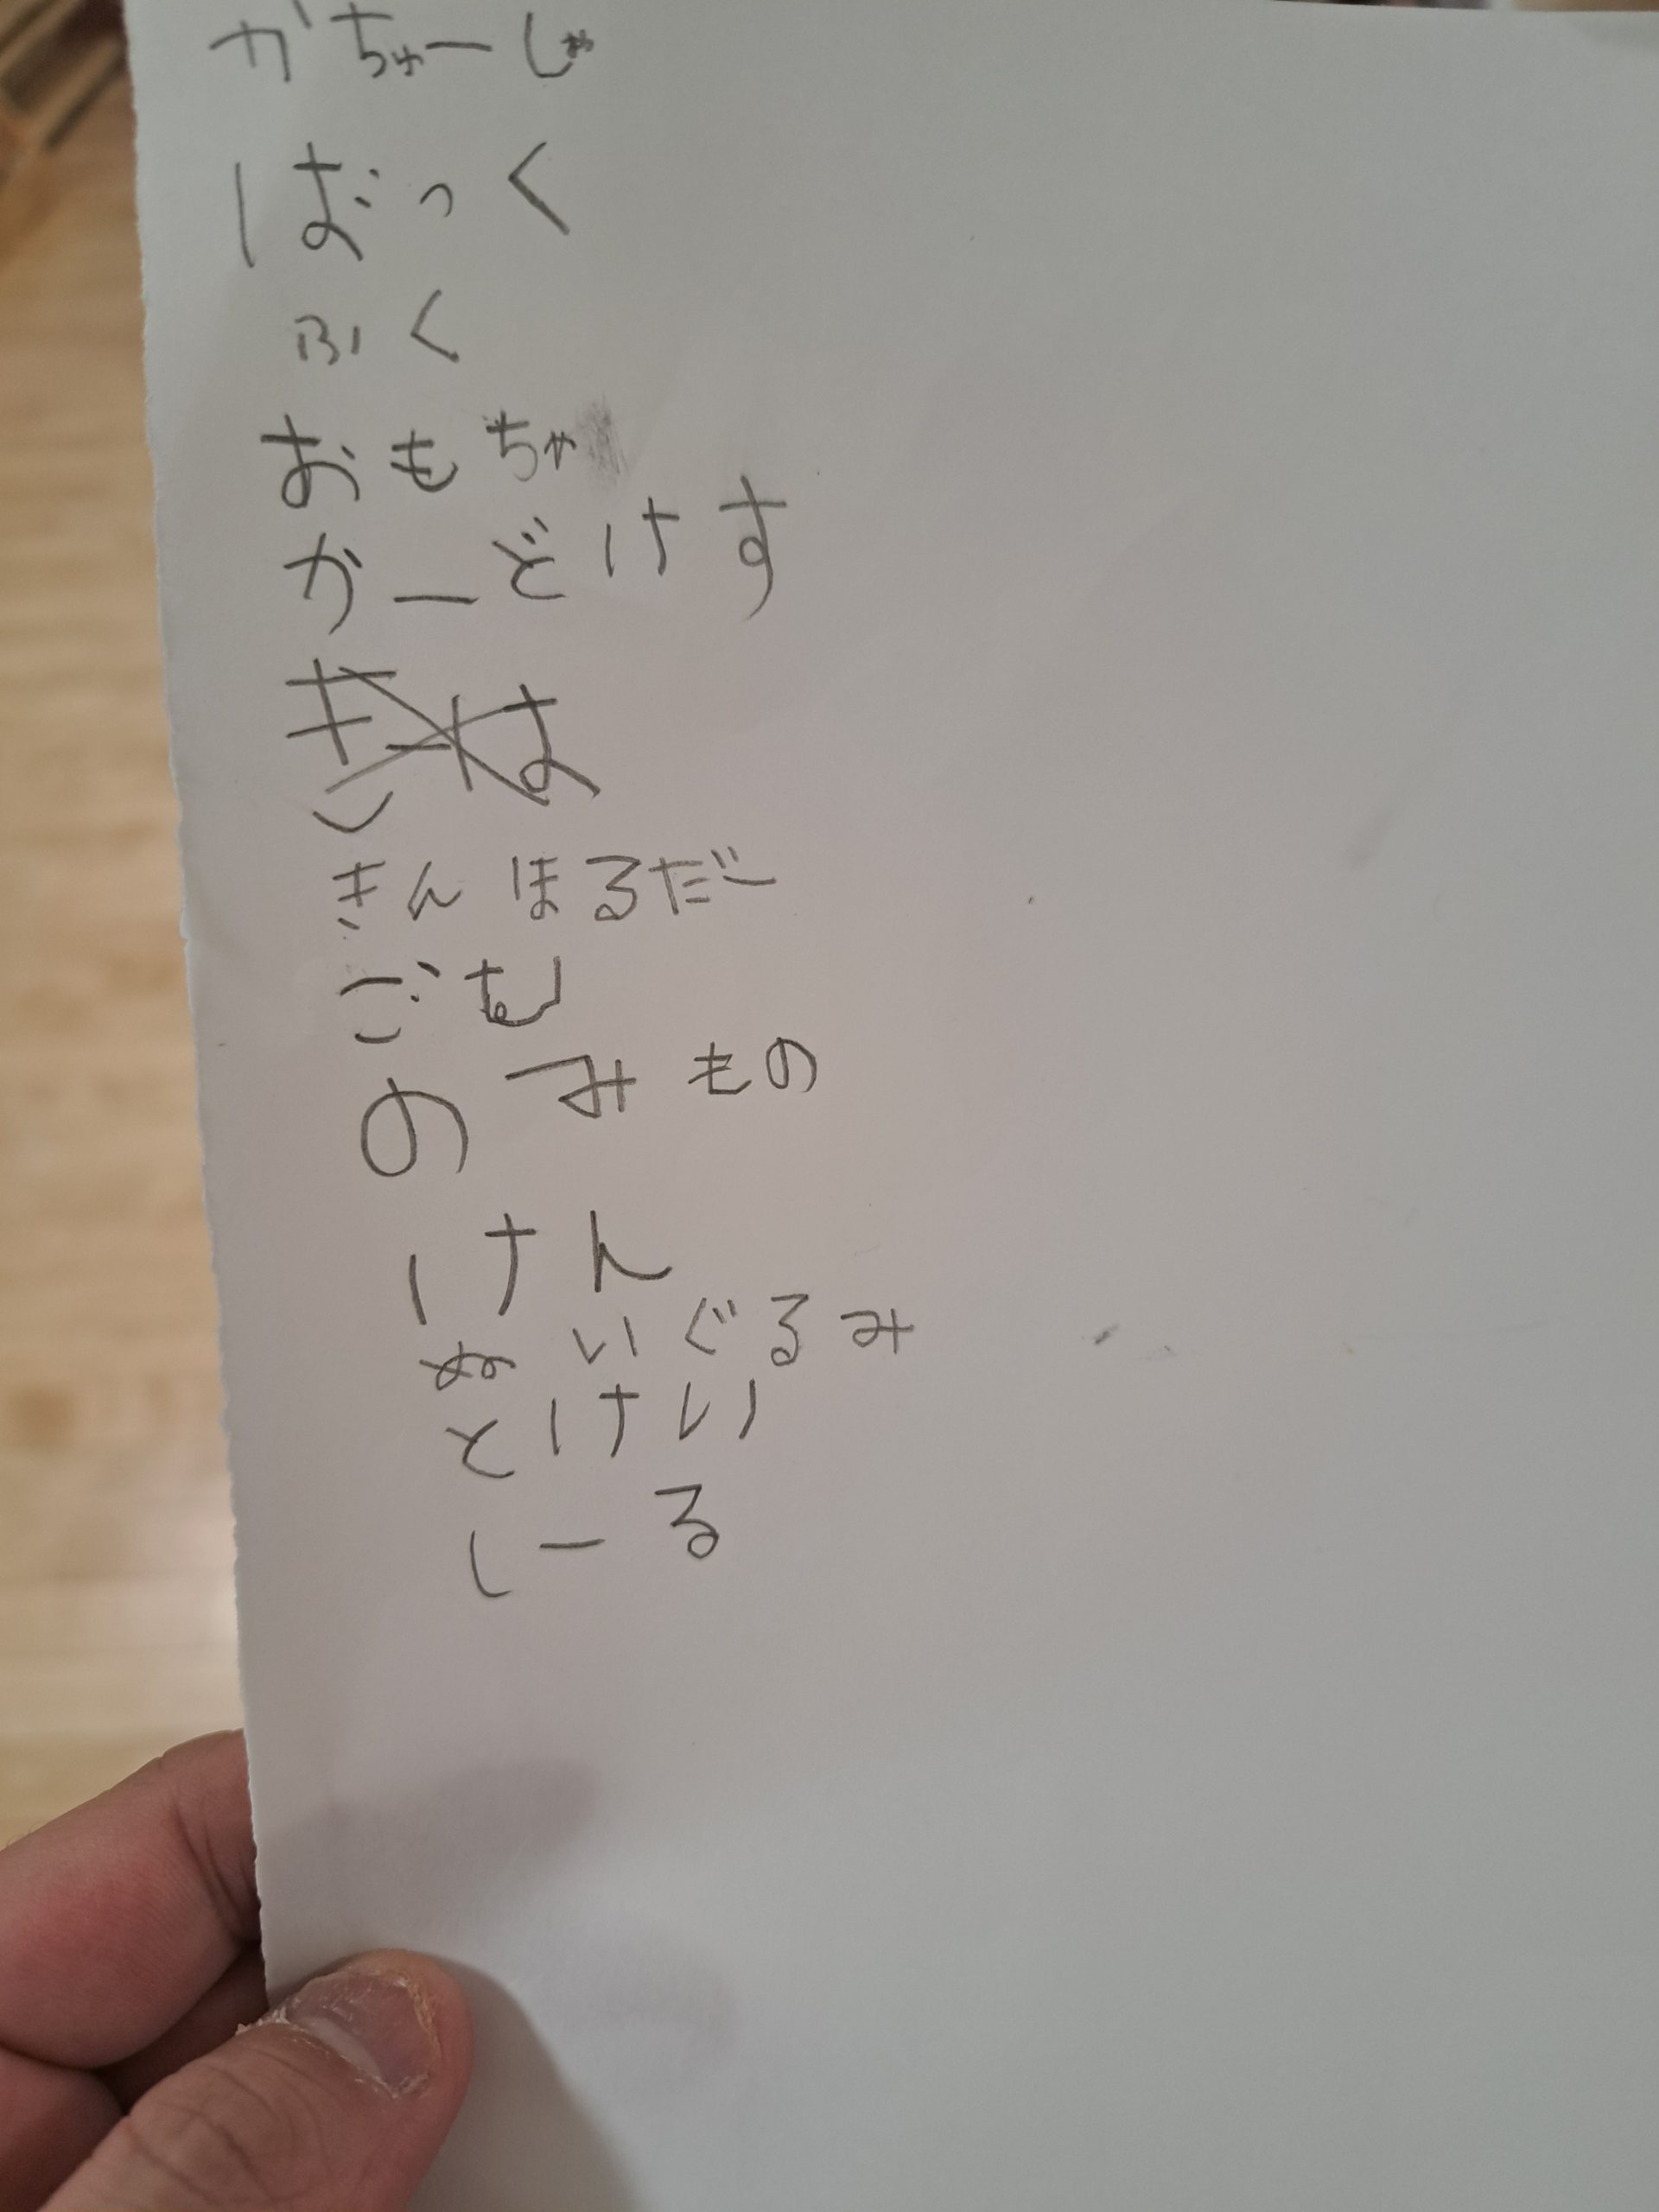 かちゅーしゃ
ばっく
ふく
おもちゃ
かーどけす
きーは
きんほるだー
ごむ
のみもの
けん
ぬいぐるみ
とけい
しーる